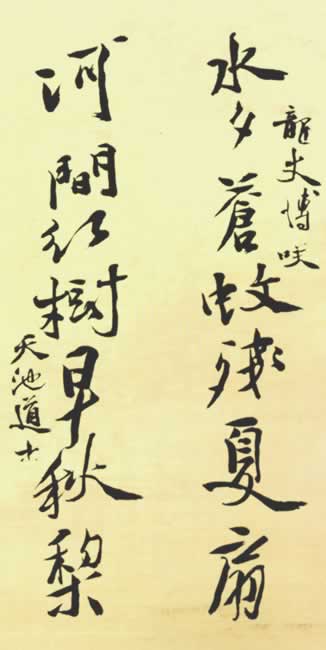 龍史博咲
水夕蒼蚊殘夏扇
河間紅樹早秋梨
天池道士